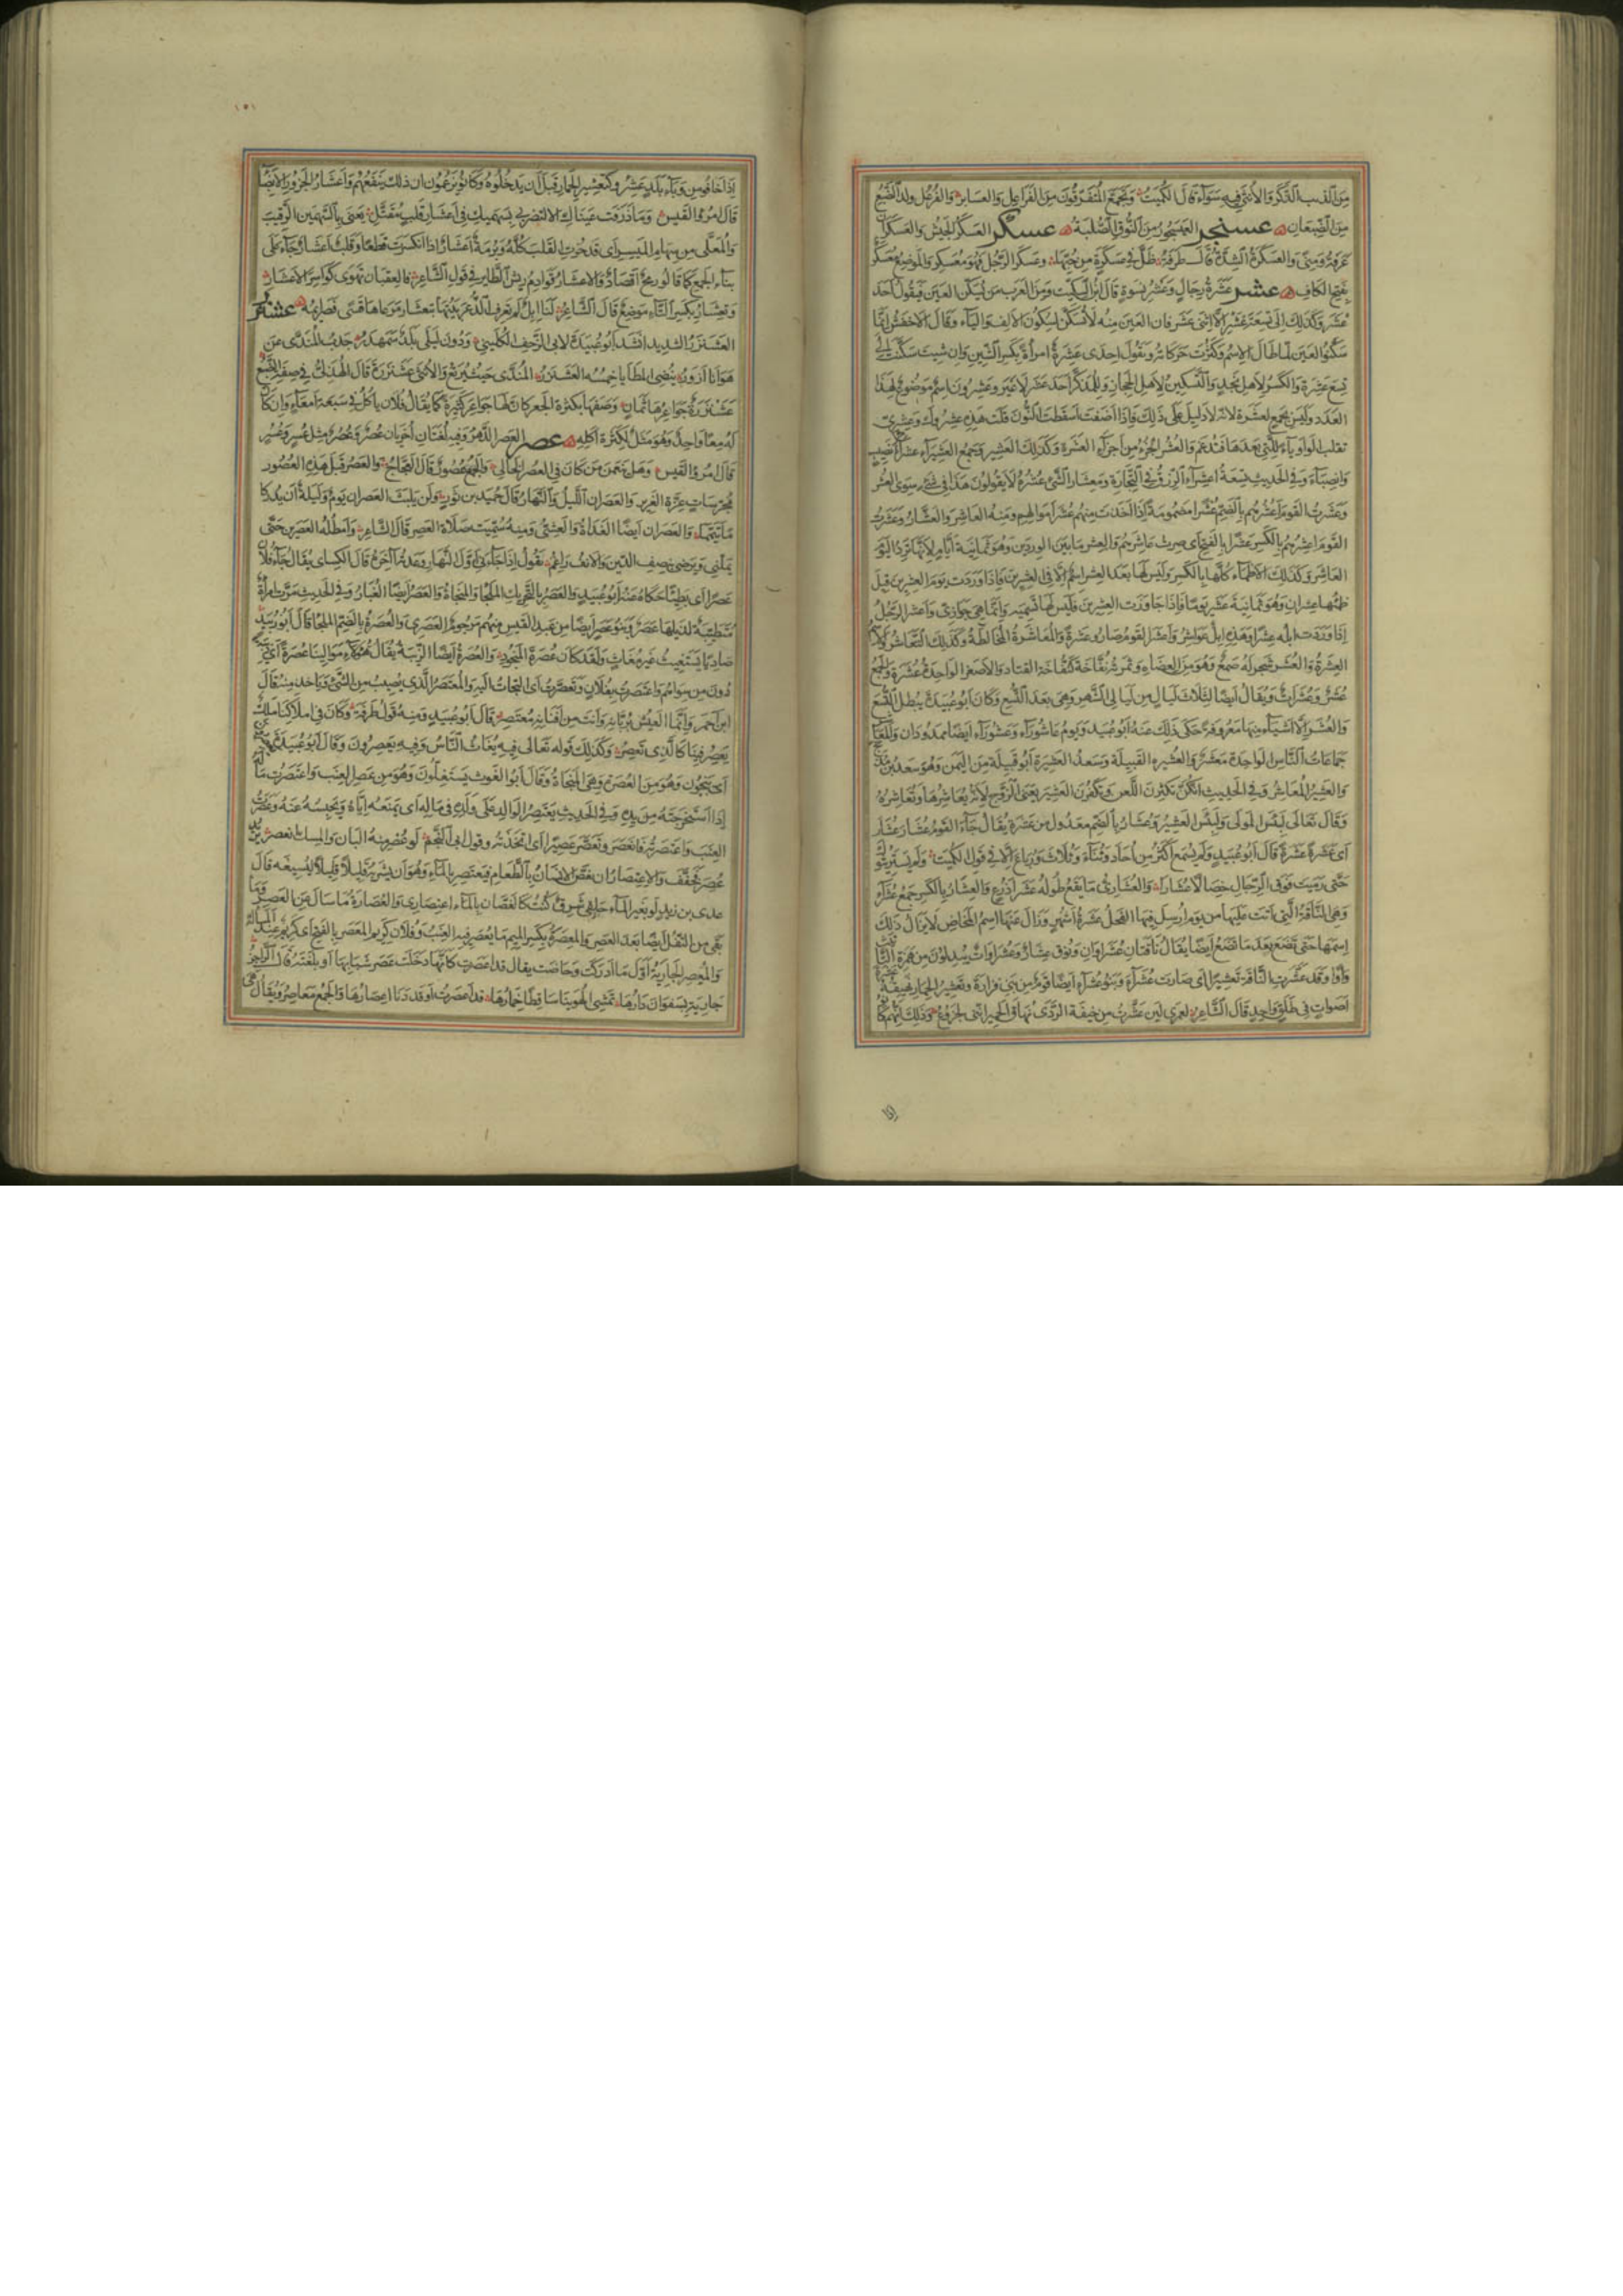 مِنَ الذئب الذَّكَرُ وَالأُنثَى فِيهِ سَوَاءٌ قَالَ الكُمَيْتُ وَتَجَمَّعَ المُتَفَرِّقُونَ مِنَ الفَرَاعِلِ وَالعَسَابِر وَالفُرْعُل ولد الضَّبُع
مِنَ الضِّبْعَانِ عسنجر العَيْسَجُورُ مِنَ النُّوقِ الصُّلْبَة عسكر العَسكَر الجَيْش وَالعَسكَرَان
عَرَفَةُ وَمِنًى وَالعَسكَرَةُ الشِدَّةُ قَالَ طَرَفَةُ ظَلَّ فِي عَسكَرَةٍ مِن حُبِّهَا وعسكَرَ الرَّجُل فَهُوَ مُعَسكِر وَالمَوضِعُ مُعَسكَر
بِفَتحِ الكَافِ عشر عَشَرَةُ رِجَالٍ وَعَشرُ نِسوَةٍ قَالَ ابنُ السِّكِّيت وَمِنَ العَرَبِ مَن يُسَكِّن العَينَ فَيَقُولُ أَحَدَ
عْشَرَ وَكَذَلِكَ إِلَى تِسعَةَ عْشَرَ إِلَّا اثنَى عَشَرَ فَإن العَينَ مِنهُ لَا تُسَكَّنُ لِسُكُونِ الأَلِف وَاليَاء وَقَالَ الأَخفَشُ إِنَّمَا
سَكَّنُوا العَينَ لَمَّا طَالَ الاِسمُ وَكَثُرَت حَرَكَاتُهُ وَتَقُولُ إِحدَى عَشِرَةَ امرأةً بِكَسرِ الشِّينِ وَإِن شِئتَ سَكَّنتَ إِلَى
تِسعَ عَشرَة وَالكَسرُ لِأَهلِ نَجدٍ وَالتَّسكِينُ لِأَهلِ الحِجَازِ وَلِلمُذَكَّرِ أَحَدَ عَشَرَ لَا غَيرُ وَعِشرُونَ اسمٌ مَوضُوعٌ لِهَذَا
العَدَد وَلَيسَ بِجَمعٍ لِعَشَرَة لأنّه لا دَلِيلَ عَلَى ذَلِكَ فَإِذَا أَضَفتَ أَسقَطتَ النُّونَ قُلتَ هَذِهِ عِشرُوكَ وَعِشرِيّ
تقلب الواو ياءً لِلَّتِي بَعدَهَا فَتُدغَم وَالعُشرُ الجُزءُ مِن أَجزَاءِ العَشَرَة وَكَذَلِكَ العَشِيرُ وَجَمعُ العَشِيرِ أَعشِرَاءُ مثل نَصِيب
وَأَنصِبَاءَ وَفِي الحَدِيثِ تِسعَةُ أَعشِرَاءِ الرِّزقِ فِي التِّجَارَةِ وَمِعشَارُ الشَّيءِ عُشرُهُ وَلَا يَقُولُونَ هَذَا فِي شَيءٍ سِوَى العُشر
وَعَشَرتُ القَومَ أَعشُرُهُم بِالضَّمِّ عُشرًا مَضمُومَةً إِذَا أَخَذتَ مِنهُم عُشرَ أَموَالِهِم وَمِنهُ العَاشِرُ وَالعَشَّارُ وَعَشَرتُ
القَومَ أَعشِرُهُم بِالكَسرِ عَشرًا بِالفَتحِ أَي صِرتُ عَاشِرَهُم وَالعِشرُ مَا بَينَ الوِردَينِ وَهُوَ ثَمَانِيَةُ أَيَّامٍ لِأَنَّهَا تَرِدُ اليَومَ
العَاشِرَ وَكَذَلِكَ الأَظمَاءُ كُلُّهَا بِالكَسرِ وَلَيسَ لَهَا بَعدَ العِشرِ اسمٌ إِلَّا فِي العِشرِينَ فَإِذَا وَرَدَت يَومَ العِشرِينَ قِيلَ
ظِمؤُهَا عِشرَانِ وَهُوَ ثَمَانِيَةَ عَشَرَ يَومًا فَإِذَا جَاوَزَت العِشرِينَ فَلَيسَ لَهَا تَسمِيَة وَإِنَّمَا هِيَ جَوَازِئ وَأَعشَرَ الرَّجُلُ
إِذَا وَرَدَت إِبِلُهُ عِشرًا وَهَذِهِ إِبِلٌ عَوَاشِرُ وَأَعشَرَ القَومُ صَارُوا عَشَرَةً وَالمُعَاشَرَةُ المُخَالَطَةُ وَكَذَلِكَ التَّعَاشُرُ وَالاسم
العِشرَةُ وَالعُشَرُ شَجَر لَهُ صَمغٌ وَهُوَ مِنَ العِضَاهِ وَثَمَرَتُهُ نُفَّاخَةٌ كَنُفَّاخَةِ القَتَادِ الأَصفَر الوَاحِدَةُ عُشَرَةٌ وَالجَمعُ
عُشَرٌ وَعُشَرَاتٌ وَيُقَالُ أَيضًا لِثَلَاثِ لَيَالٍ مِن لَيَالِي الشَّهرِ عُشَرٌ وَهِيَ بَعدَ التُّسَع وَكَانَ أَبُو عُبَيدَةَ يُبطِلُ التُّسَعَ
وَالعُشَرَ إِلَّا أَشيَاءَ مِنهَا مَعرُوفَةً حَكَى ذَلِكَ عَنهُ أَبُو عُبَيد وَيَومُ عَاشُورَاءَ وَعَشُورَاءَ أَيضًا مَمدُودَان وَالمَعَاشِر
جَمَاعَاتُ النَّاسِ الوَاحِدَةُ مَعشَرٌ وَالعَشِيرَة القَبِيلَة وَسَعدُ العَشِيرَةِ أَبُو قَبِيلَةٍ مِنَ اليَمَنِ وَهُوَ سَعدُ بنُ مَذحِج
وَالعَشِيرُ المُعَاشِرُ وَفِي الحَدِيثِ إِنَّكُنَّ تُكثِرنَ اللَّعنَ وَتَكفُرنَ العَشِيرَ يَعنِي الزَّوجَ لِأَنَّهُ يُعَاشِرُهَا وَتُعَاشِرُهُ
وَقَالَ تَعَالَى لَبِئسَ المَولَى وَلَبِئسَ العَشِيرُ وَعُشَارُ بِالضَّمِّ مَعدُولٌ مِن عَشَرَةٍ يُقَالُ جَاءَ القَومُ عُشَارَ عُشَارَ
أَي عَشَرَةً عَشَرَةً قَالَ أَبُو عُبَيدٍ وَلَم يُسمَع أَكثَرُ مِن أُحَادَ وَثُنَاءَ وَثُلَاثَ وَرُبَاعَ إِلَّا فِي قَولِ الكُمَيت وَلَم يَستَرِيثُوكَ
حَتَّى رَمَيتَ فَوقَ الرِّجَالِ خِصَالًا عُشَارَا وَالعُشَارِيُّ مَا يَقَعُ طُولُهُ عَشرَ أَذرُعٍ وَالعِشَارُ بِالكَسرِ جَمعُ عُشَرَاءَ
وَهِيَ النَّاقَةُ الَّتِي أَتَت عَلَيهَا مِن يَومِ أُرسِلَ فِيهَا الفَحلُ عَشرَةُ أَشهُرٍ وَزَالَ عَنهَا اسمُ المَخَاضِ لَا يَزَالُ ذَلِكَ
اسمَهَا حَتَّى تَضَعَ وَبَعدَ مَا تَضَعُ أَيضًا يُقَالُ نَاقَتَانِ عُشَرَاوَانِ وَنُوقٌ عِشَارٌ وَعُشَرَاوَاتٌ يُبدِلُونَ مِن هَمزَةِ التَّأنيث
وَاوًا وَقَد عَشَّرَتِ النَّاقَة تَعشِيرًا أَي صَارَت عُشَرَاءَ وَبَنُو عُشَرَاءَ أَيضًا قَومٌ مِن بَنِي فَزَارَةَ وَتَعشِيرُ الحِمَارِ نَهِيقُهُ عشرة
أَصوَاتٍ فِي طَلَقٍ وَاحِدٍ قَالَ الشَّاعِرُ لَعَمرِي لَئِن عَشَّرتُ مِن خِيفَةِ الرَّدَى نُهَاقَ الحَمِيرِ إِنَّنِي لَجَزُوعُ وَذَلِكَ إِنَّهُم كَانُوا
١٥١
إِذَا خَافُوا مِن وَبَاءِ بَلَدٍ عَشَّرُوا كَتَعشِيرِ الحِمَارِ قَبلَ أَن يَدخُلُوهُ وَكَانُوا يَزعُمُونَ أَن ذَلِكَ يَنفَعُهُم وَأَعشَارُ الجَزُورِ الأَنصِبَاء
قَالَ امرُؤُ القَيسِ وَمَا ذَرَفَت عَينَاكِ إِلَّا لِتَضرِبِي بِسَهمَيكِ فِي أَعشَارِ قَلبٍ مُقَتَّلِ يَعنِي بِالسَّهمَينِ الرَّقِيبَ
وَالمُعَلَّى مِن سِهَامِ المَيسِرِ أَي قَد حُزتِ القَلبَ كُلَّهُ وَبُرمَةٌ أَعشَارٌ إِذَا انكَسَرَت قِطَعًا وَقَلبٌ أَعشَارٌ جَاءَ عَلَى
بِنَاءِ الجَمعِ كَمَا قَالُوا رُمحٌ أَقصَادٌ وَالأَعشَارُ قَوَادِمُ رِيشِ الطَّائِر فِي قَولِ الشَّاعِرِ فَالعِقبَان تَهوِي كَوَاسِرَ الأَعشَارِ
وَتِعشَارُ بِكَسرِ التَّاءِ مَوضِعٌ قَالَ الشَّاعِرُ لَنَا إِبِلٌ لَم تَعرِفِ الذُّعرَ بَينَهَا بِتِعشَارَ مَرعَاهَا قَسًى فَصَرَائِمُه عشنزر
العَشَنزَرُ الشَّدِيدُ أَنشَدَ أَبُو عُبَيدَةَ لِأَبِي الزَّحفِ الكُلَيبِي وَدُونَ لَيلَى بَلَدٌ سَمَهدَرُ جَدبُ المُنَدَّى عَن
هَوَانَا أَزوَرُ يُنضِي المَطَايَا خِمسُهُ العَشَنزَرُ المُنَدَّى حَيثُ يُرتَعُ وَالأُنثَى عَشَنزَرَةٌ قَالَ الهُذَلِيُّ فِي صِفَةِ الضَّبُع
عَشَنزَرَةٌ جَوَاعِرُهَا ثَمَانٍ وَصَفَهَا بِكَثرَةِ الجَعرِ كَأَنَّ لَهَا جَوَاعِرَ كَثِيرَةً كَمَا يُقَالُ فُلَان يَأكُلُ فِي سَبعَةِ أَمعَاءٍ وَإِن كَانَ
لَهُ مِعًى وَاحِدٌ وَهُوَ مَثَلٌ لِكَثرَةِ أَكلِهِ عصر العَصرُ الدَّهرُ وَفِيهِ لُغَتَانِ أُخرَيَانِ عُصرٌ وَعُصُرٌ مِثلُ عُسرٍ وَعُسُرٍ
قَالَ امرُؤُ القَيسِ وَهَل يَعِمَن مَن كَانَ فِي العُصُرِ الخَالِي وَالجَمعُ عُصُورٌ قَالَ العَجَّاجُ وَالعَصرِ قَبلَ هَذِهِ العُصُور
مُجَرِّسَاتٍ غِرَّةَ الغَرِيرِ وَالعَصرَانِ اللَّيلُ وَالنَّهَارُ قَالَ حُمَيدُ بن ثَورٍ وَلَن يَلبَثَ العَصرَانِ يَومٌ وَلَيلَةٌ إِذا طلبا أَن يُدرِكَا
مَا تَيَمَّمَا وَالعَصرَانِ أَيضًا الغَدَاةُ وَالعَشِيُّ وَمِنهُ سُمِّيَت صَلَاةُ العَصرِ قَالَ الشَّاعِرُ وَأَمطُلُهُ العَصرَينِ حَتَّى
يَمَلَّنِي وَيَرضَى بِنِصفِ الدَّينِ وَالأَنفُ رَاغِمُ يَقُولُ إِذَا جَاءَنِي أَوَّلَ النَّهَارِ وَعَدتُهُ آخِرَهُ قَالَ الكِسَائِي يُقَالُ جَاءَ فُلَانٌ
عَصرًا أَي بَطِيئًا حَكَاهُ عَنهُ أَبُو عُبَيدٍ وَالعَصَرُ بِالتَّحرِيكِ المَلجَأُ وَالمَنجَاةُ وَالعَصَرُ أَيضًا الغُبَارُ وَفِي الحَدِيثِ مَرَّت امرَأَةٌ
مُتَطَيِّبَةٌ لِذَيلِهَا عَصَرٌ وَبَنُو عَصَرٍ أَيضًا مِن عَبدِ القَيسِ مِنهُم مَرجُومٌ العَصَرِيُّ وَالعُصرَةُ بِالضَّمِّ المَلجَأُ قَالَ أَبُو زُبَيدٍ
صَادِيًا يَستَغِيثُ غَيرَ مُغَاثٍ وَلَقَد كَانَ عُصرَةَ المَنجُودِ وَالعُصرَةُ أَيضًا الدِّنيَةُ يُقَالُ هَؤُلَاءِ مَوَالِينَا عُصرَةً أَي دِنيَةً
دُونَ مِن سِوَاهُم وَاعتَصَرتُ بِفُلَانٍ وَتَعَصَّرتُ أَي التَجَأتُ إِلَيهِ وَالمُعتَصِرُ الَّذِي يُصِيبُ مِنَ الشَّيءِ وَيَأخُذُ مِنهُ قَالَ
ابنُ أَحمَر وَإِنَّمَا العَيشُ بِرُبَّانِهِ وَأَنتَ مِن أَفنَانِهِ مُعتَصِر قَالَ أَبُو عُبَيدٍ وَمِنهُ قَولُ طَرَفَةَ لَو كَانَ فِي أَملَاكِنَا مَلِكٌ
يَعصِرُ فِينَا كَالَّذِي تَعصِرُ وَكَذَلِكَ قَولُه تَعَالَى فِيهِ يُغَاثُ النَّاسُ وَفِيهِ يَعصِرُونَ وَقَالَ أَبُو عُبَيدَةَ
أَي يَنجُونَ وَهُوَ مِنَ العُصرَةِ وَهِيَ المَنجَاةُ وَقَالَ أَبُو الغَوثِ يَستَغِلُّونَ وَهُوَ مِن عَصرِ العِنَبِ وَاعتَصَرتُ مَالَهُ
إِذَا استَخرَجتَهُ مِن يَدِهِ وَفِي الحَدِيثِ يَعتَصِرُ الوَالِدُ عَلَى وَلَدِهِ فِي مَالِهِ أَي يَمنَعُهُ إِيَّاهُ وَيَحبِسُهُ عَنهُ وَعَصَرتُ
العِنَبَ وَاعتَصَرتُهُ فَانعَصَرَ وَتَعَصَّرَ عَصِيرًا أَي اتَّخَذتُه وَقَولُ أَبِي النَّجمِ لَو عُصرَ مِنهُ البَانُ وَالمِسكُ انعَصَر يُرِيدُ
عُصِرَ فَخَفَّفَ وَالاعتِصَارُ أَن يَغَصَّ الإِنسَانُ بِالطَّعَامِ فَيَعتَصِرَ بِالمَاءِ وَهُوَ أَن يَشرَبَهُ قَلِيلًا قَلِيلًا لِيُسِيغَهُ قَالَ
عدي بن زَيد لَو بِغَيرِ المَاءِ حَلقِي شَرِقٌ كُنتُ كَالغَصَّانِ بِالمَاءِ اعتِصَارِي وَالعُصَارَةُ مَا سَالَ عَنِ العَصِيرِ وَمَا
بَقِيَ مِنَ الثُّفلِ أَيضًا بَعدَ العَصرِ وَالمِعصَرَةُ بِكَسرِ المِيمِ مَا يُعصَرُ فِيهِ العِنَبُ وَفُلَانٌ كَرِيمُ المَعصَرِ بِالفَتحِ أَي كَرِيمٌ عِندَ المَسأَلَة
وَالمُعصِرُ الجَارِيَةُ أَوَّلَ مَا أَدرَكَت وَحَاضَت يُقَال قَد أَعصَرَت كَأَنَّهَا دَخَلَت عَصرَ شَبَابِهَا أَو بَلَغَتهُ قَالَ الرَّاجِزُ
جَارِيَةٌ بِسَفَوَانَ دَارُهَا تَمشِي الهُوَينَا سَاقِطًا خِمَارُهَا قَد أَعصَرَت أَو قَد دَنَا إِعصَارُهَا وَالجَمعُ مَعَاصِرُ وَيُقَالُ هِيَ